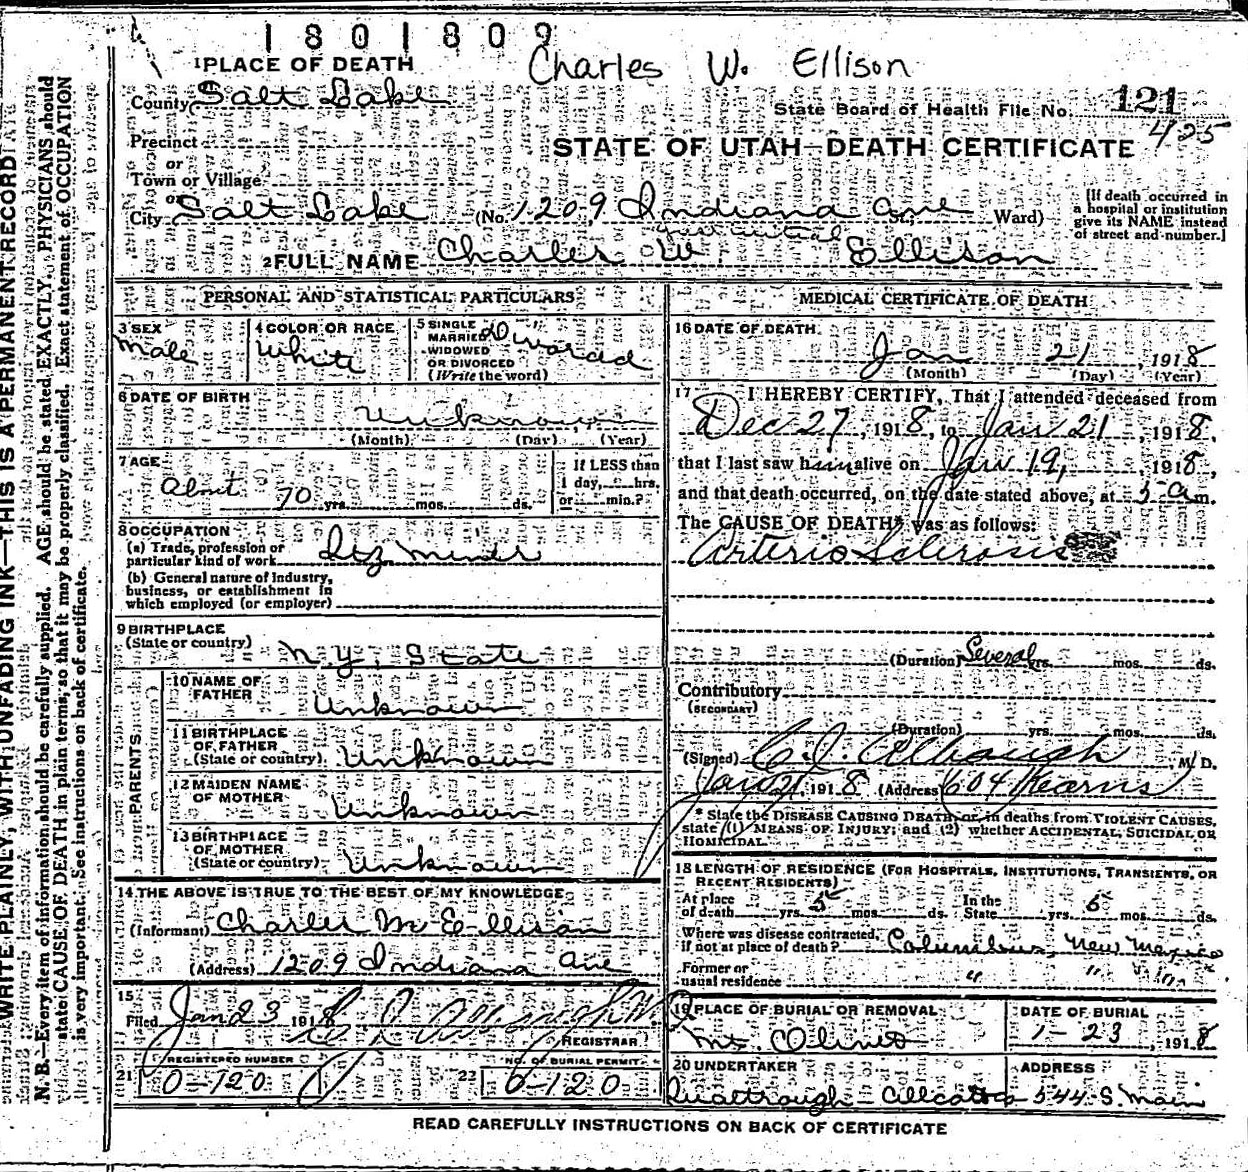 1801809
1 PLACE OF DEATH
Charles W. Ellison
County Salt Lake
State Board of Health File No. 121
425
Precinct
STATE OF UTAH—DEATH CERTIFICATE
or
Town or Village
or
City Salt Lake (No. 1209 Indiana Ave Ward)
[If death occurred in
a hospital or institution
give its NAME instead
of street and number.]
2 FULL NAME Charles W Ellison
PERSONAL AND STATISTICAL PARTICULARS
3 SEX
Male
4 COLOR OR RACE
White
5 SINGLE
MARRIED
WIDOWED
OR DIVORCED
(Write the word)
Divorced
6 DATE OF BIRTH
Unknown
(Month) (Day) (Year)
7 AGE
About 70 yrs. mos. ds.
If LESS than
1 day, hrs.
or min.?
8 OCCUPATION
(a) Trade, profession or
particular kind of work Miner
(b) General nature of industry,
business, or establishment in
which employed (or employer)
9 BIRTHPLACE
(State or country)
N.Y. State
PARENTS
10 NAME OF
FATHER
Unknown
11 BIRTHPLACE
OF FATHER
(State or country) Unknown
12 MAIDEN NAME
OF MOTHER
Unknown
13 BIRTHPLACE
OF MOTHER
(State or country) Unknown
14 THE ABOVE IS TRUE TO THE BEST OF MY KNOWLEDGE
(Informant) Charles M Ellison
(Address) 1209 Indiana Ave
15
Filed Jan 23 1918
REGISTRAR
REGISTERED NUMBER
21 0-120
NO. OF BURIAL PERMIT
22 0-120
MEDICAL CERTIFICATE OF DEATH
16 DATE OF DEATH
Jan 21, 1918
(Month) (Day) (Year)
17 I HEREBY CERTIFY, That I attended deceased from
Dec 27, 1918, to Jan 21, 1918,
that I last saw him alive on Jan 19, 1918,
and that death occurred, on the date stated above, at 5 a m.
The CAUSE OF DEATH* was as follows:
Arterio Sclerosis
(Duration) Several yrs. mos. ds.
Contributory
(SECONDARY)
(Duration) yrs. mos. ds.
(Signed) C. J. Albaugh, M. D.
Jan 21, 1918 (Address) 604 Kearns
* State the DISEASE CAUSING DEATH, or, in deaths from VIOLENT CAUSES,
state (1) MEANS OF INJURY; and (2) whether ACCIDENTAL, SUICIDAL OR
HOMICIDAL.
18 LENGTH OF RESIDENCE (FOR HOSPITALS, INSTITUTIONS, TRANSIENTS, OR
RECENT RESIDENTS)
At place
of death yrs. 5 mos. ds.
In the
State yrs. 5 mos. ds.
Where was disease contracted,
if not at place of death? Columbus, New Mexico
Former or
usual residence " " "
19 PLACE OF BURIAL OR REMOVAL
Mt. Olivet
DATE OF BURIAL
1-23, 1918
20 UNDERTAKER
ADDRESS
544 S. Main
READ CAREFULLY INSTRUCTIONS ON BACK OF CERTIFICATE
WRITE PLAINLY, WITH UNFADING INK—THIS IS A PERMANENT RECORD
N. B.—Every item of information should be carefully supplied. AGE should be stated EXACTLY. PHYSICIANS should
state CAUSE OF DEATH in plain terms, so that it may be properly classified. Exact statement of OCCUPATION
is very important. See instructions on back of certificate.